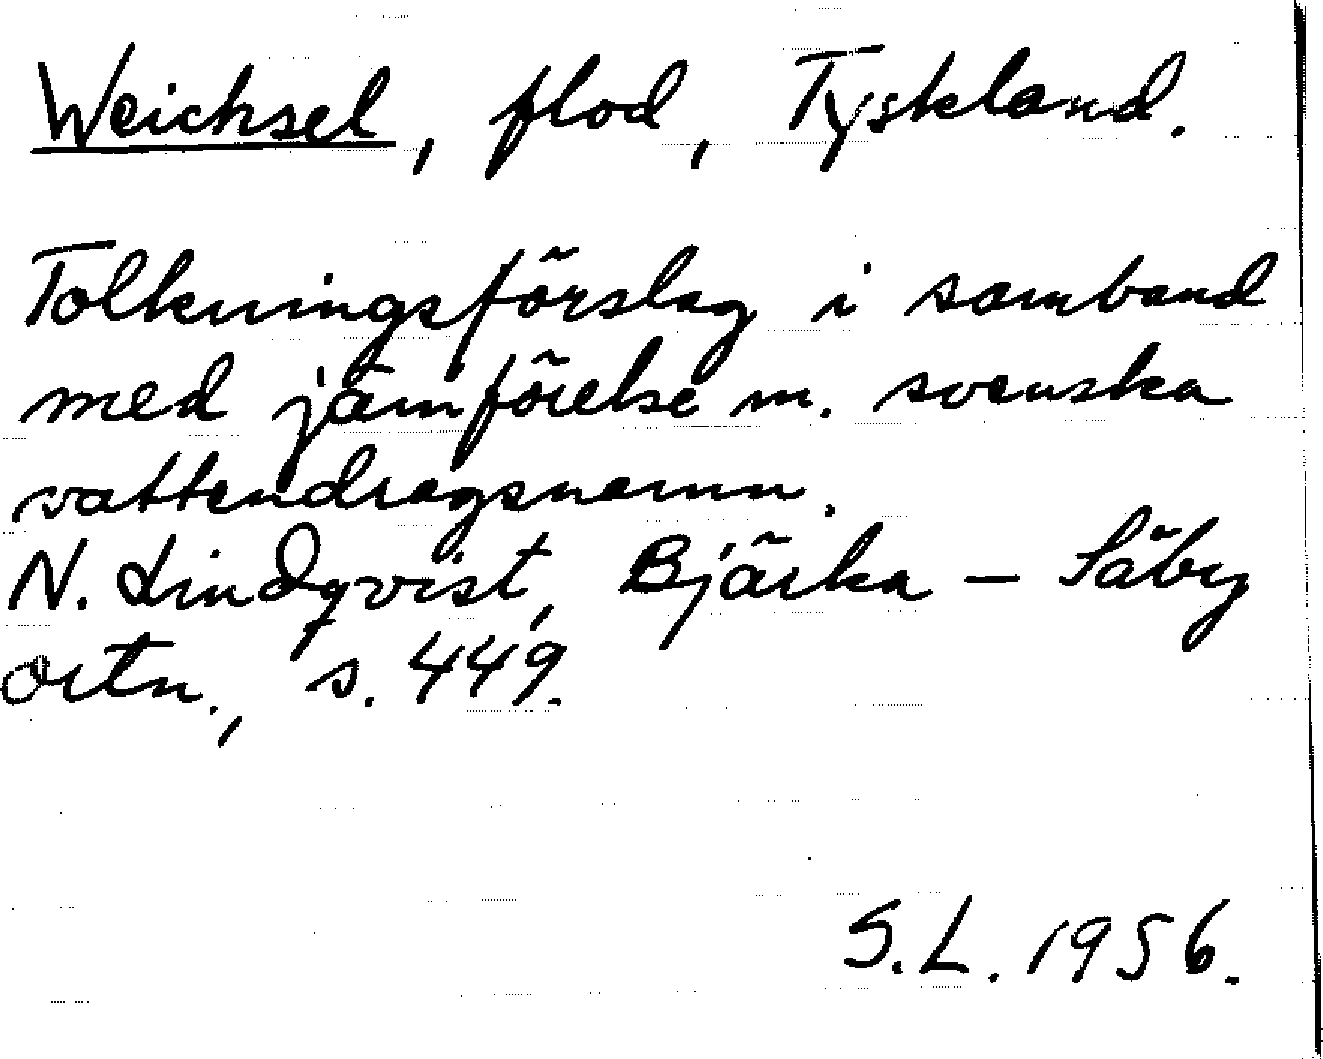 Weichsel, flod, Tyskland.
Tolkningsförslag i samband
med jämförelse m. svenska
vattendragsnamn.
N. Lindqvist, Bjärka – Säby
ortn., s. 449.
S.L. 1956.